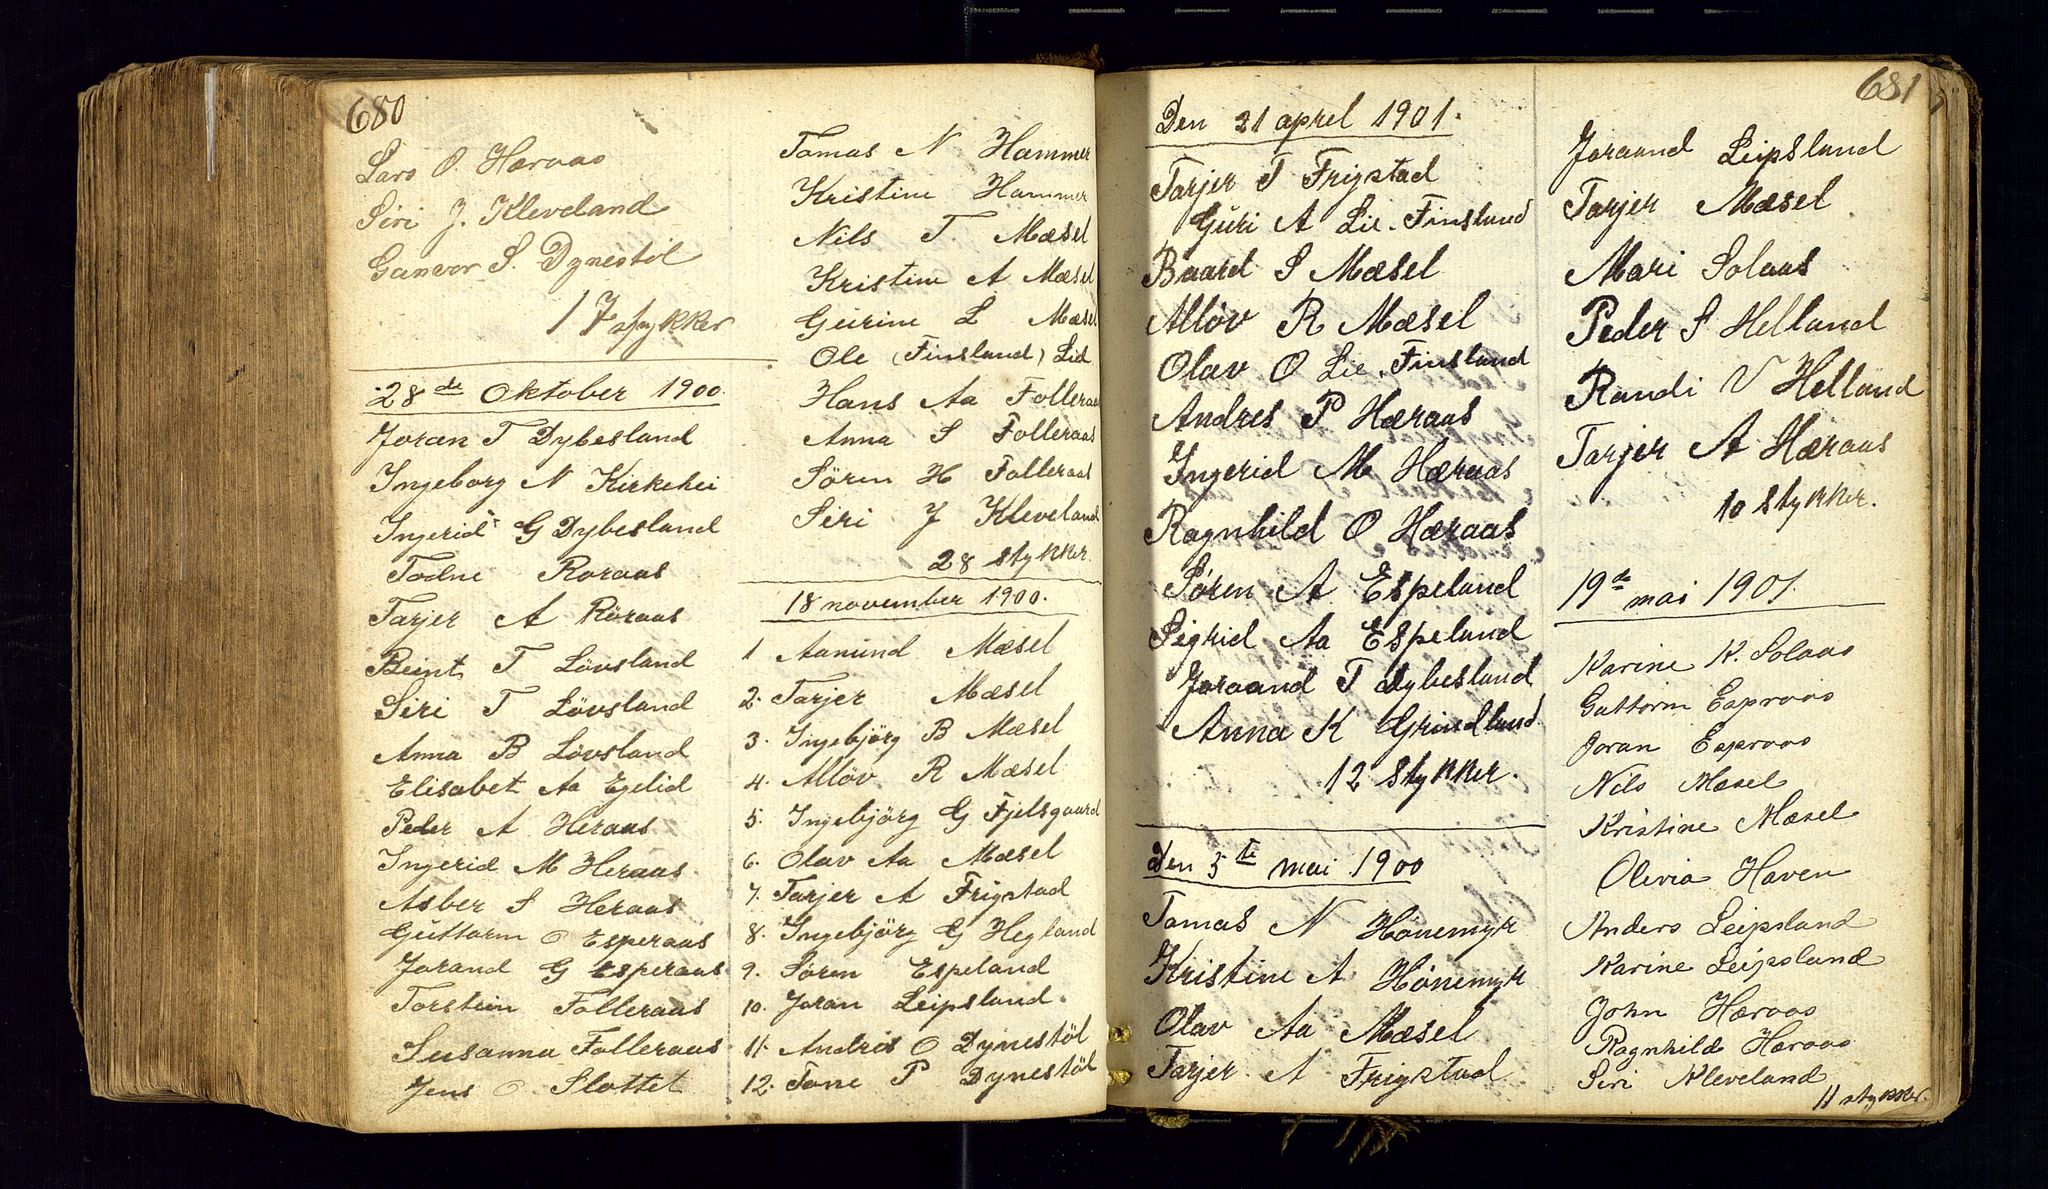 680
Lars O. Høraas
Siri J. Kleveland
Gunvor S. Dynestöl
17 stykker
28de Oktober 1900.
Joran T Dybesland
Ingeborg N Kirkehei
Ingerid G Dybesland
Todne Røraas
Tarjer A Röraas
Beint T Lövsland
Siri T Lövsland
Anna B Lövsland
Elisabet Aa Egelid
Peder A Heraas
Ingerid M Heraas
Asber S Heraas
Guttorm O Esperaas
Jorand G Esperaas
Torstein Folleraas
Susanna Folleraas
Jens O Slottet
Tomas N Hommer
Kristine Hommer
Nils T Mæsel
Kristine A Mæsel
Gurine L Mæsel
Ole (Finsland) Lid
Hans Aa Folleraas
Anna S Folleraas
Sören H Folleraas
Siri J Kleveland
28 stykker.
18 november 1900.
1 Aanund Mæsel
2. Tarjer Mæsel
3. Ingebjörg B Mæsel
4. Allöv R Mæsel
5. Ingebjörg G Fjelsgaard
6. Olav Aa Mæsel
7. Tarjer A Frigstad
8. Ingebjörg G Hegland
9. Sören Espeland
10. Joran Leipsland.
11. Andris O Dynestöl
12. Tone P Dynestöl
681
Den 21 aprel 1901.
Tarjer T Frigstad
Guri A Lie. Finsland
Baard S Mæsel
Allöv R Mæsel
Olav O Lie. Finsland
Andres P Hæraas
Ingerid M Hæraas
Ragnhild O Hæraas
Søren A Espeland
Sigrid Aa Espeland
Joraand T Dybesland
Anna K Grindland
12 Stykker.
Den 5te mai 1900
Tomas N Hönemyr
Kristine A Hönemyr
Olav Aa Mæsel
Tarjer A Frigstad
Joraand Leipsland
Tarjer Mæsel
Mari Solaas
Peder S Helland
Randi V Helland
Tarjer A Hæraas
10 stykker.
19de mai 1901.
Karine K. Solaas
Guttorm Espraas
Joran Espraas
Nils Mæsel
Kristine Mæsel
Olivia Haven
Anders Leipsland
Karine Leipsland
John Hæraas
Ragnhild Hæraas
Siri Kleveland
11 stykker.